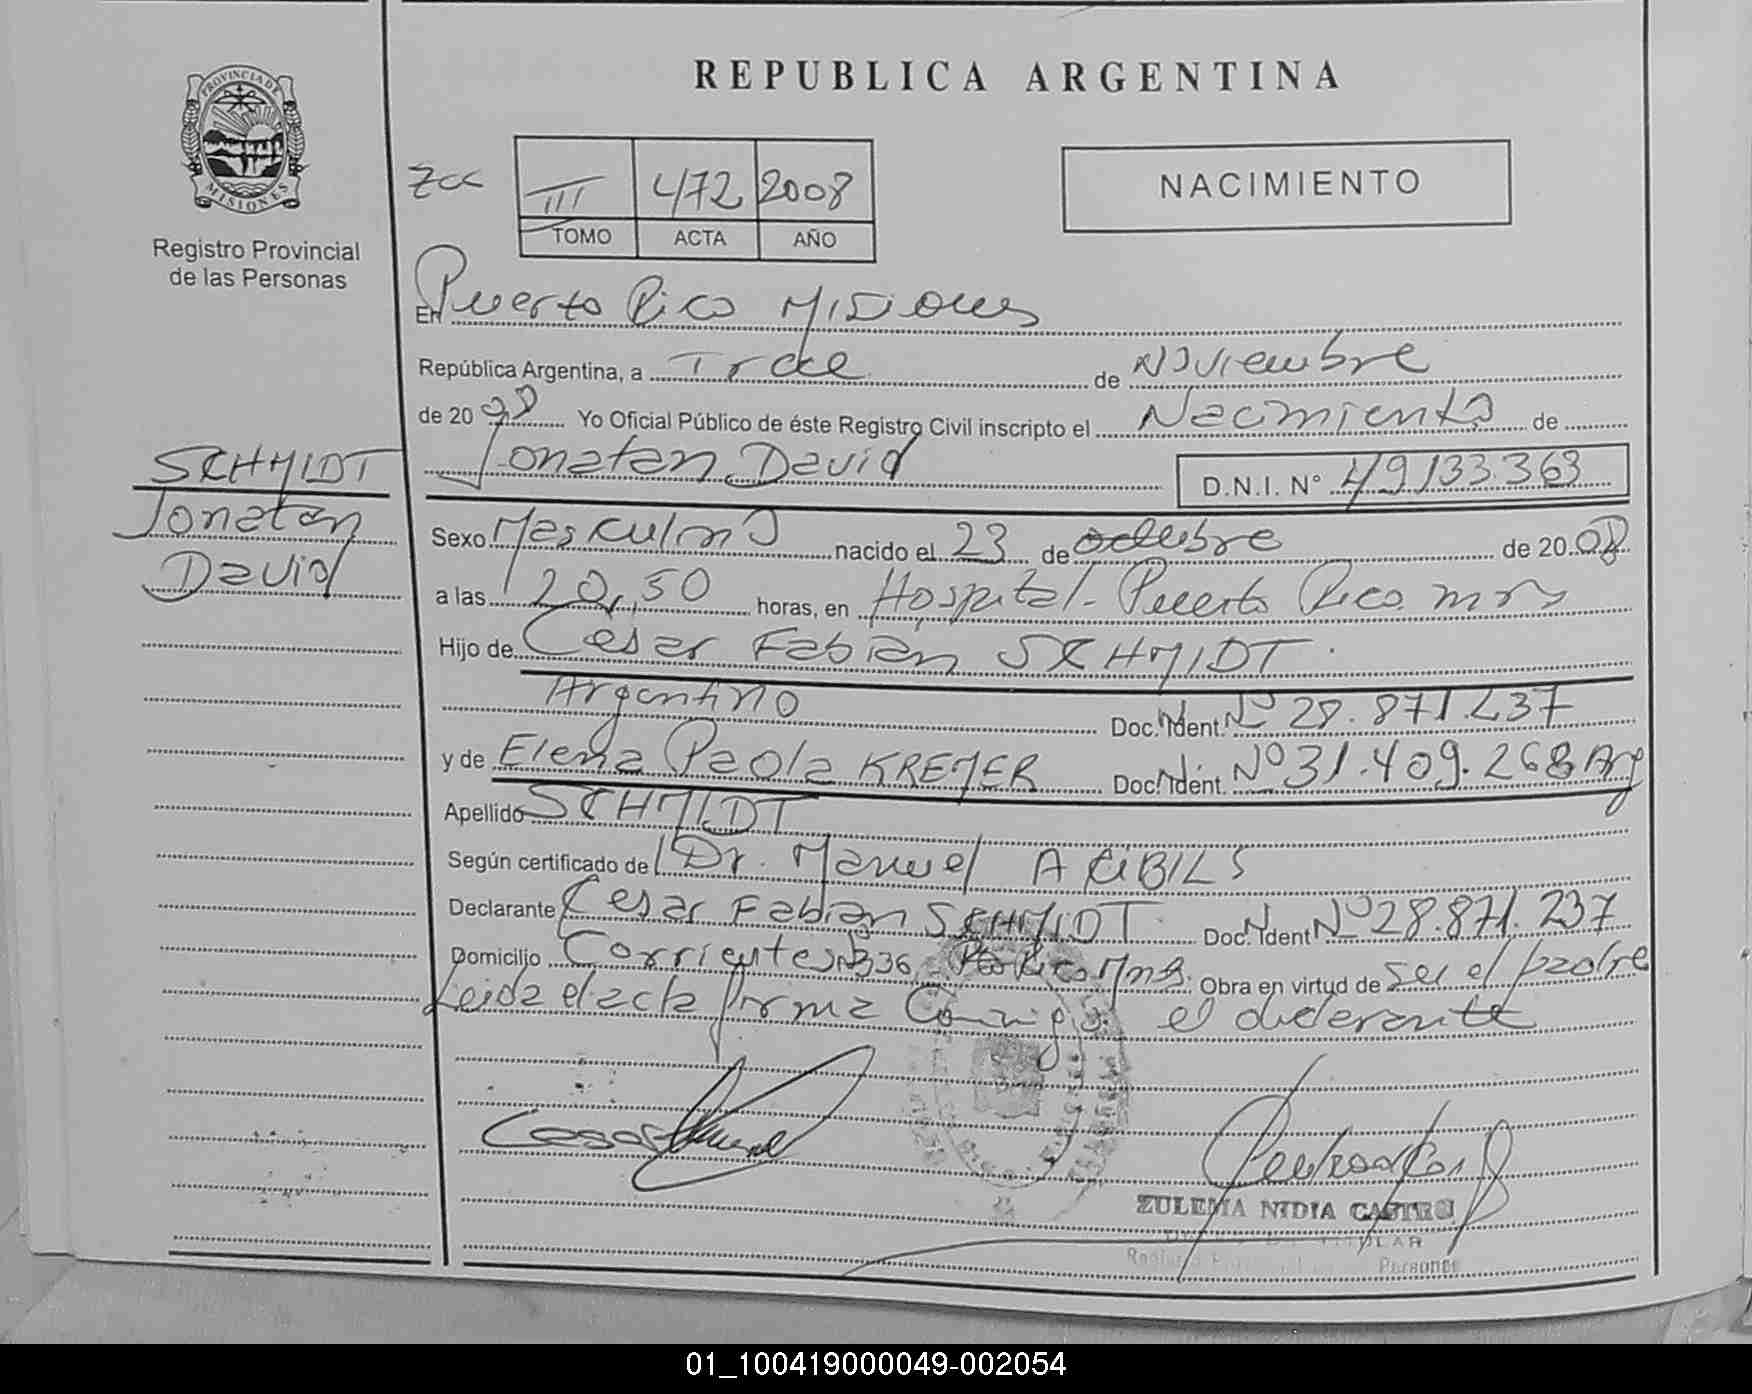 REPUBLICA ARGENTINA
PROVINCIA DE
MISIONES
Registro Provincial
de las Personas
III 472 2008
TOMO ACTA AÑO
NACIMIENTO
En Puerto Rico Misiones
República Argentina, a Trece de Noviembre
de 2008 Yo Oficial Público de éste Registro Civil inscripto el Nacimiento de
Jonatan David D.N.I. N° 49133.363
SCHMIDT
Jonatan
David
Sexo Masculino nacido el 23 de octubre de 2008
a las 20,50 horas, en Hospital - Puerto Rico mns
Hijo de Cesar Fabian SCHMIDT
Argentino Doc. Ident. Nº 28.871.237
y de Elena Paola KREMER Doc. Ident. Nº 31.409.268 Arg
Apellido SCHMIDT
Según certificado de Dr. Manuel ARIBILS
Declarante Cesar Fabian SCHMIDT Doc. Ident Nº 28.871.237
Domicilio Corrientes Nº 336 Pto Rico Mns. Obra en virtud de ser el padre
Leida el acta firma Conmigo el declarante
ZULEMA NIDIA CASTRO
TITULAR
Personas
01_100419000049-002054